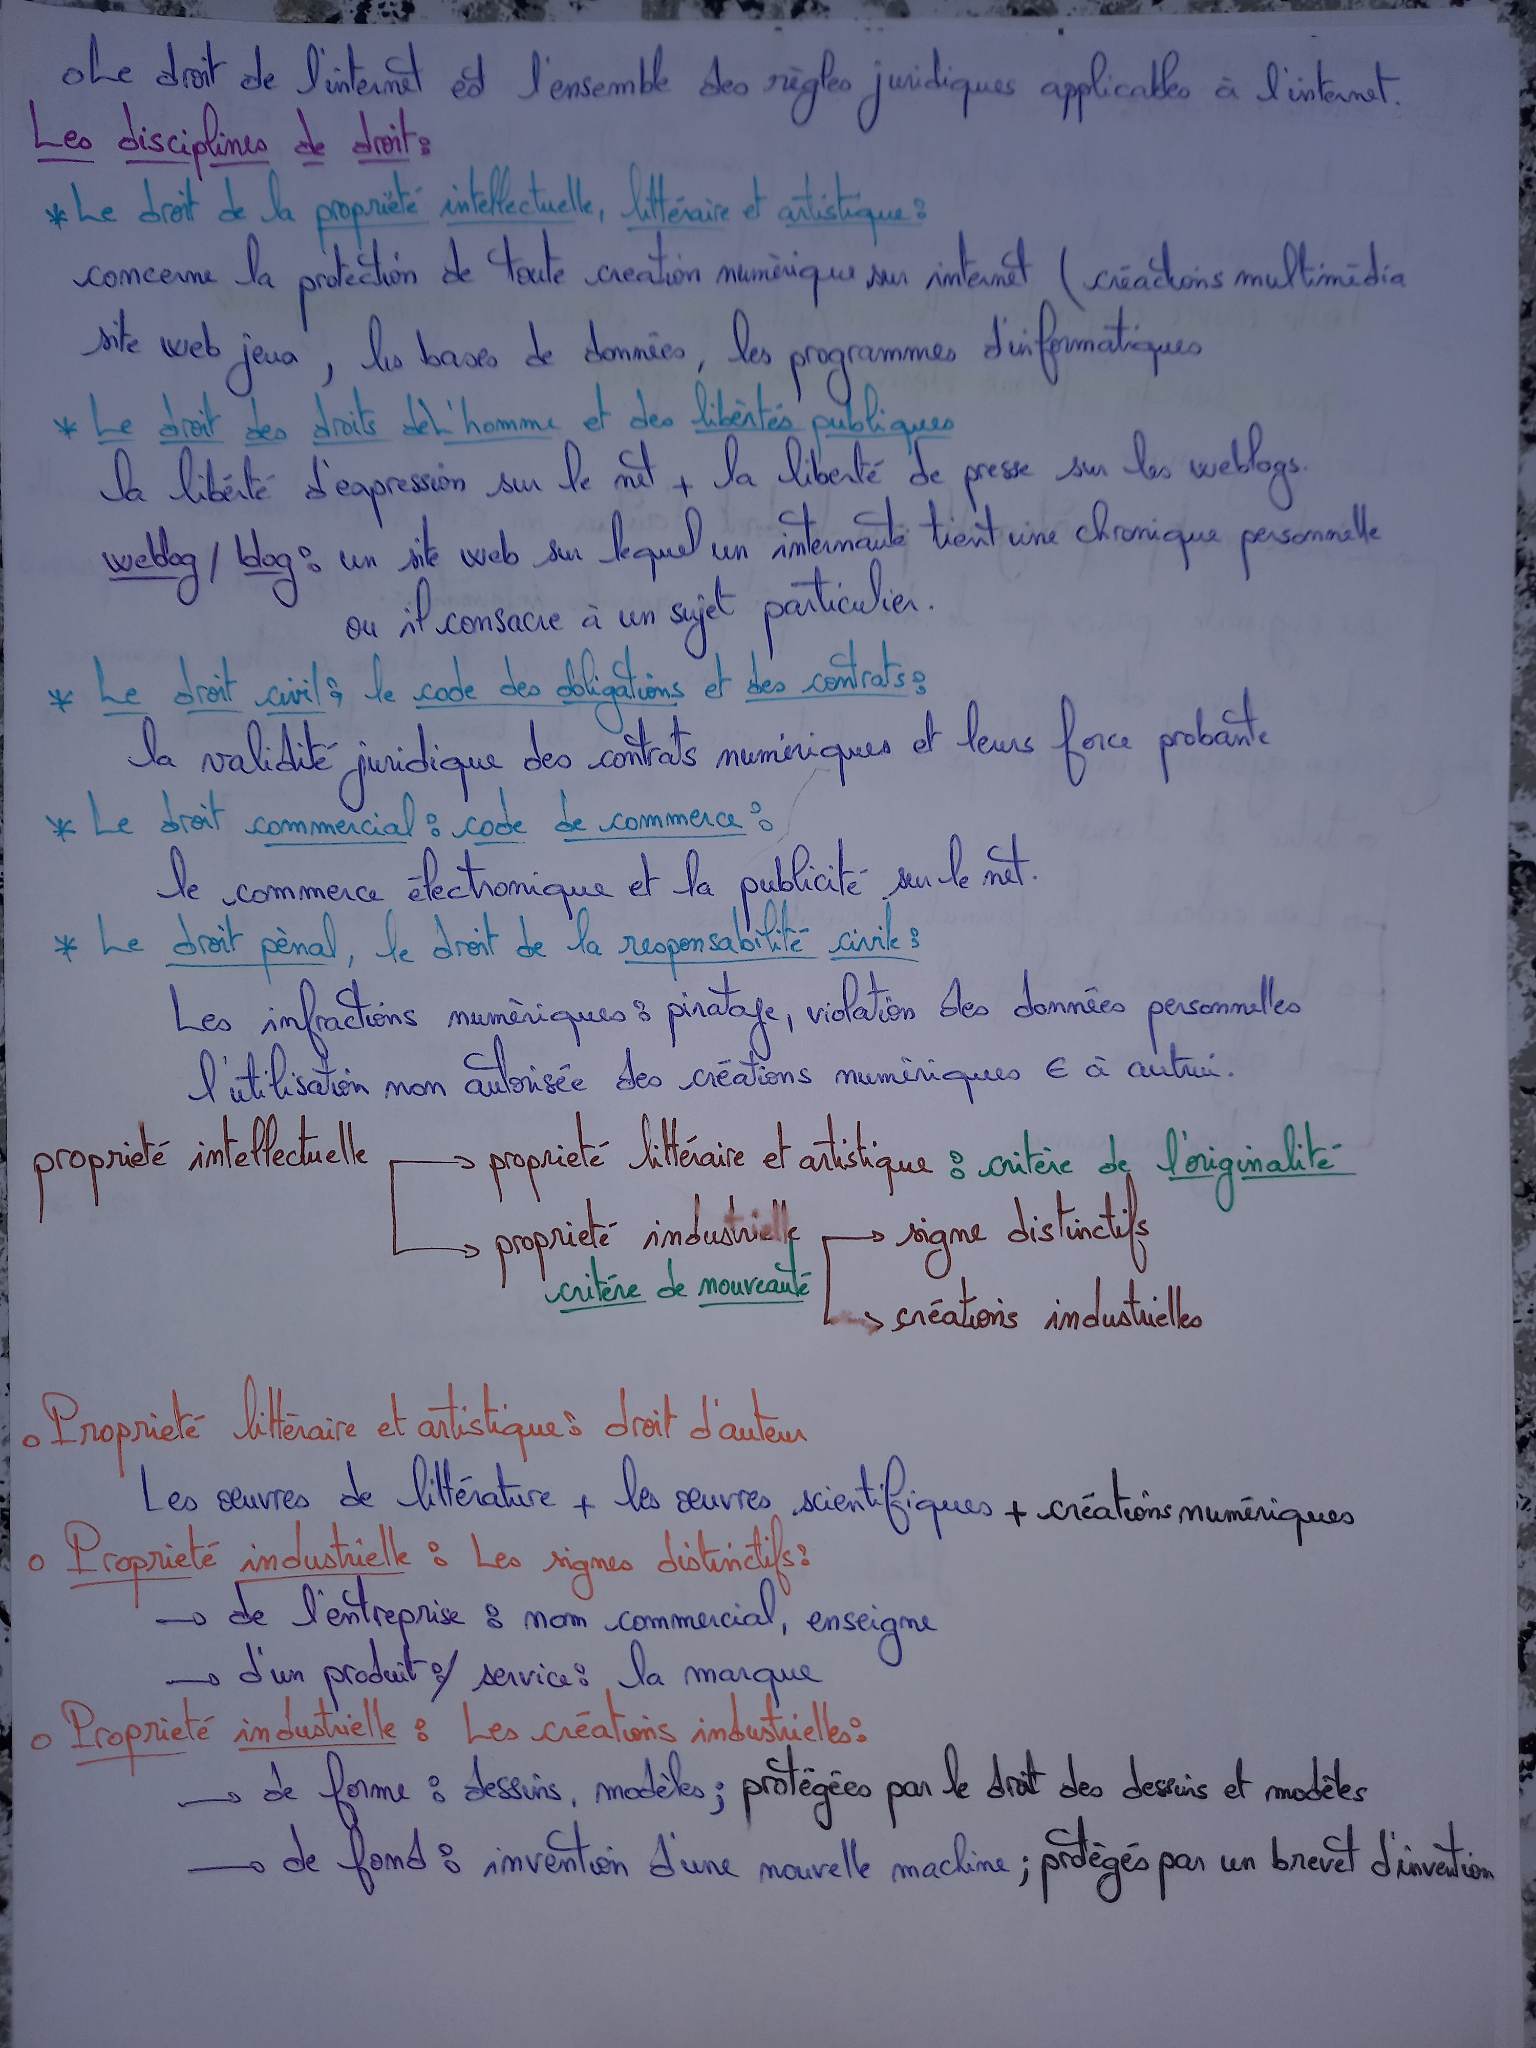 ○ Le droit de l'internet est l'ensemble des règles juridiques applicables à l'internet.
Les disciplines de droit :
* Le droit de la propriété intellectuelle, littéraire et artistique :
concerne la protection de toute creation numérique sur internet ( créactions multimédia
site web jeux, les bases de données, les programmes d'informatiques
* Le droit des droits de L'homme et des libértés publiques
la libérté d'expression sur le net + la liberté de presse sur les weblogs.
weblog / blog : un site web sur lequel un internaute tient une chronique personnelle
ou il consacre à un sujet particulier.
* Le droit civil ; le code des obligations et des contrats :
la validité juridique des contrats numériques et leurs force probante
* Le droit commercial : code de commerce :
le commerce électronique et la publicité sur le net.
* Le droit pènal, le droit de la responsabilité civile :
Les infractions numèriques : piratage, violation des données personnelles
l'utilisation non autorisée des créations numèriques ∈ à autrui.
proprieté intellectuelle → proprieté littéraire et artistique : critère de l'originalité
→ proprieté industrielle → signe distinctifs
critére de nouveauté
→ créations industrielles
○ Proprieté littéraire et artistique : droit d'auteur
Les œuvres de littérature + les œuvres scientifiques + créations numériques
○ Proprieté industrielle : Les signes distinctifs :
→ de l'entreprise : nom commercial, enseigne
→ d'un produit :/ service : la marque
○ Proprieté industrielle : Les créations industrielles :
→ de forme : dessins, modèles ; protégées par le droit des dessins et modèles
→ de fond : invention d'une nouvelle machine ; protégés par un brevet d'invention